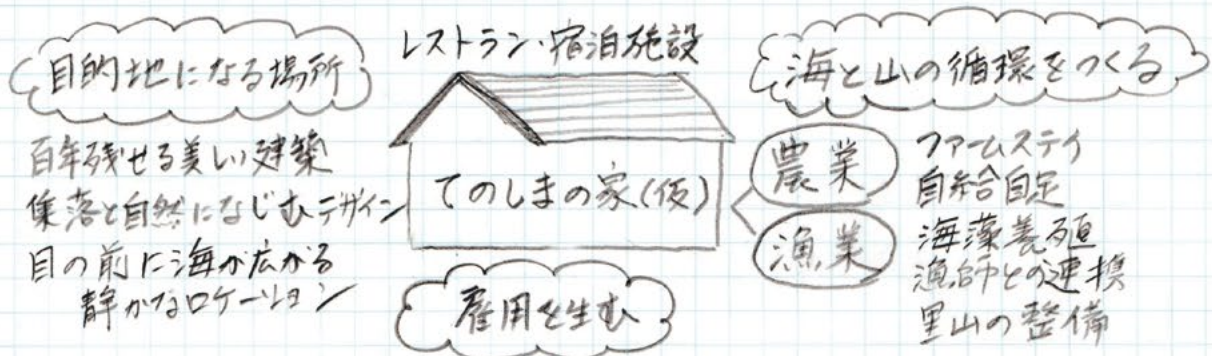 目的地になる場所
百年残せる美しい建築
集落と自然になじむデザイン
目の前に海が広がる
静かなロケーション
レストラン・宿泊施設
てのしまの家(仮)
雇用を生む
海と山の循環をつくる
農業
漁業
ファームステイ
自給自足
海藻養殖
漁師との連携
里山の整備